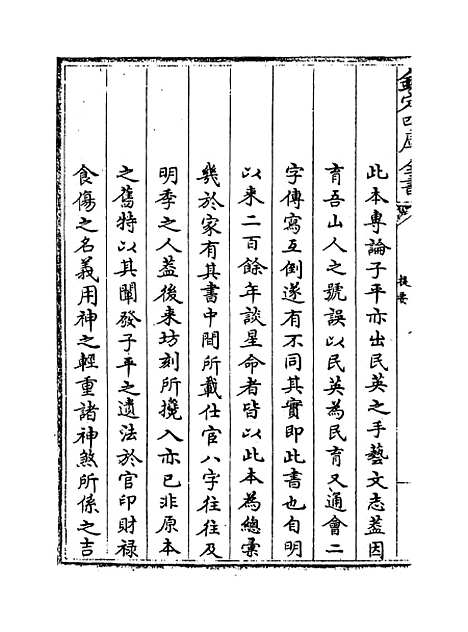 欽定四庫全書
提要
此本專論子平亦出民英之手藝文志蓋因
育吾山人之號誤以民英為民育又通會二
字傳寫互倒遂有不同其實即此書也自明
以來二百餘年談星命者皆以此本為總彙
幾於家有其書中間所載仕宦八字往往及
明季之人蓋後來坊刻所攙入亦已非原本
之舊特以其闡發子平之遺法於官印財祿
食傷之名義用神之輕重諸神煞所係之吉